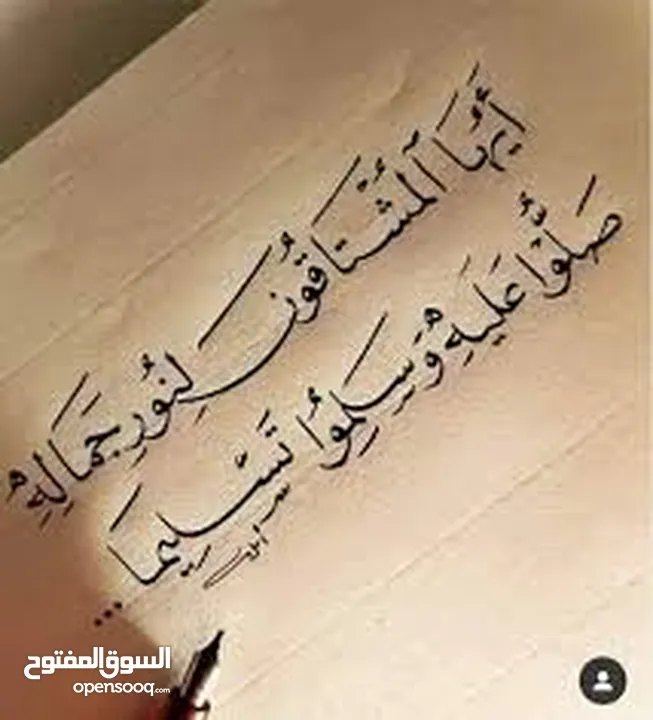 أَيُّهَا ٱلْمُشْتَاقُونَ لِنُورِ جَمَالِهِ
صَلُّوا عَلَيْهِ وَسَلِّمُوا تَسْلِيمَا...
السوق المفتوح
opensooq.com